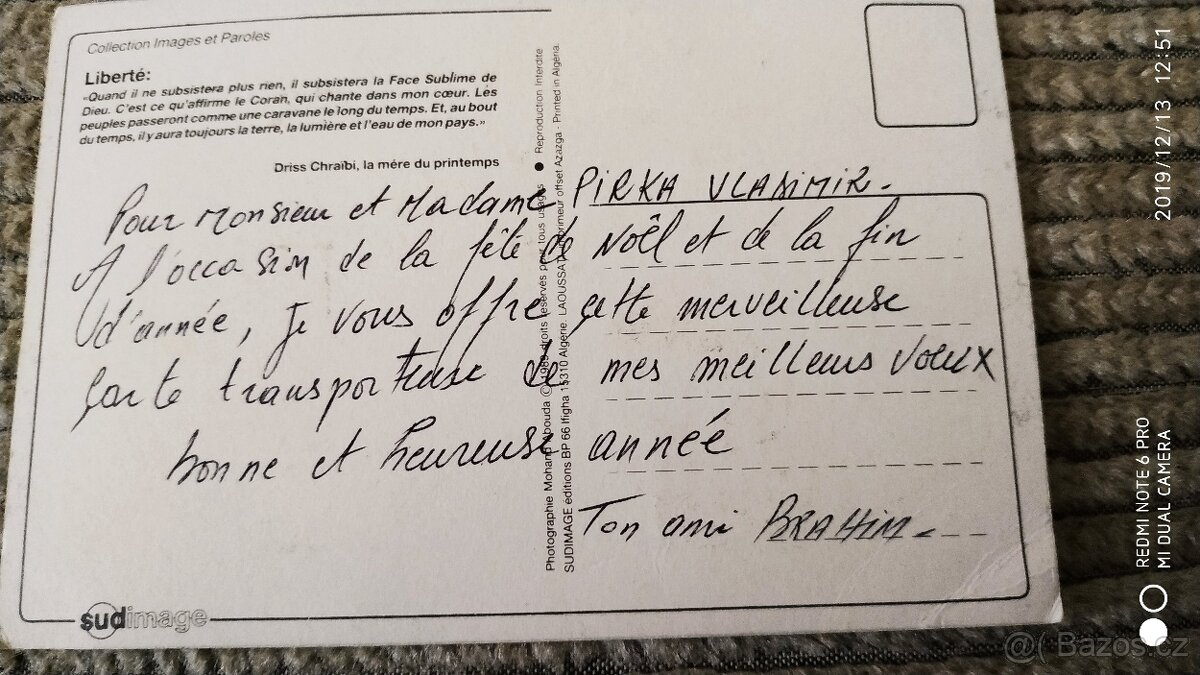 Collection Images et Paroles
Liberté:
«Quand il ne subsistera plus rien, il subsistera la Face Sublime de
Dieu. C'est ce qu'affirme le Coran, qui chante dans mon cœur. Les
peuples passeront comme une caravane le long du temps. Et, au bout
du temps, il y aura toujours la terre, la lumière et l'eau de mon pays.»
Driss Chraïbi, la mére du printemps
Pour Monsieur et Madame PIRKA VLADIMIR.
A l'occasion de la fête de Noël et de la fin
d'année, je vous offre cette merveilleuse
carte transporteuse de mes meilleurs voeux
bonne et heureuse année
Ton ami BRAHIM.
Photographie Mohand Abouda © 1989 droits réservés pour tous usages ● Reproduction Interdite
SUDIMAGE editions BP 66 Ifigha 15310 Algérie. LAOUSSATI imprimeur offset Azazga - Printed in Algéria.
sudimage
2019/12/13 12:51
REDMI NOTE 6 PRO
MI DUAL CAMERA
@( Bazos.cz